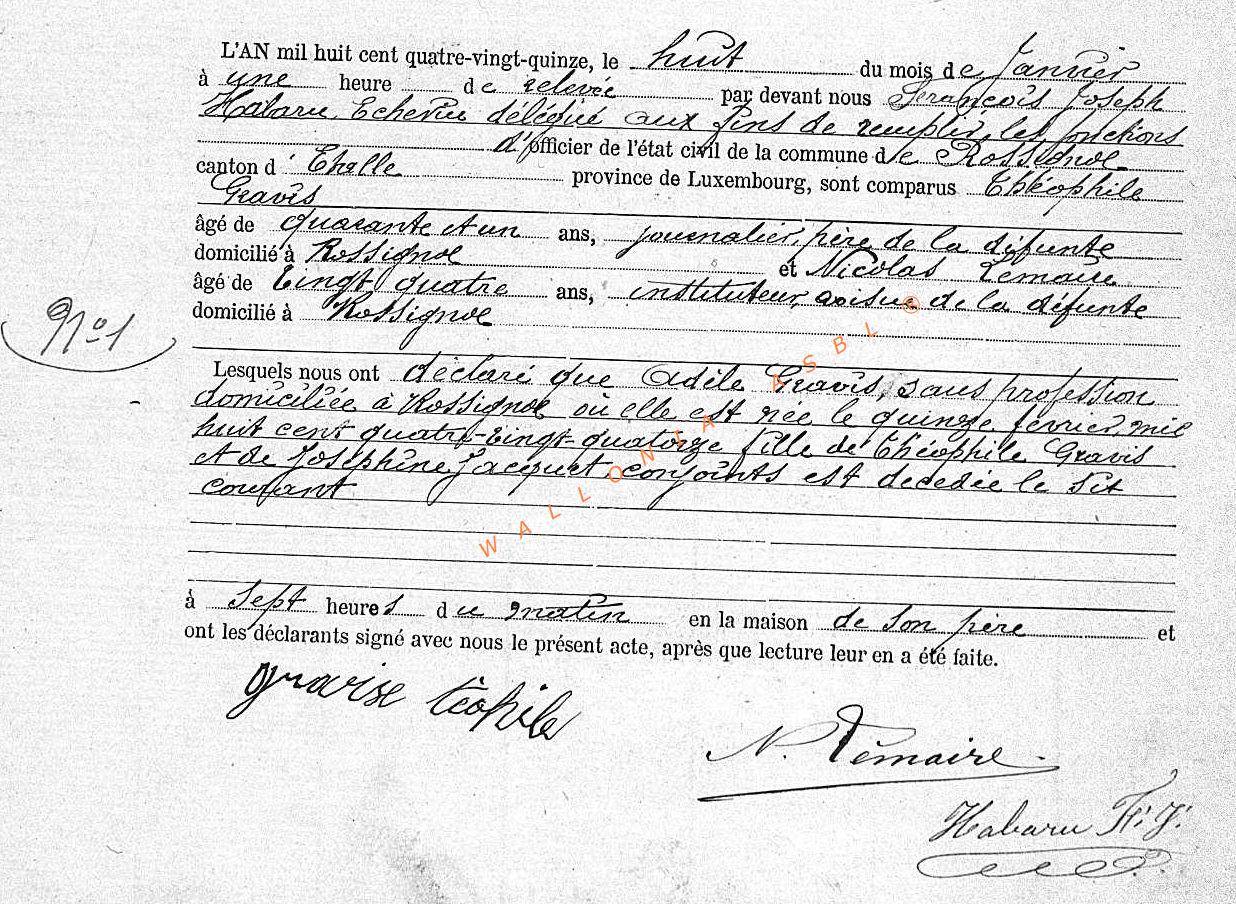 L'AN mil huit cent quatre-vingt-quinze, le huit du mois de Janvier
à une heure de relevée par devant nous François Joseph
Habaru, Echevin délégué aux fins de remplir les fonctions
d'officier de l'état civil de la commune de Rossignol
canton d'Etalle province de Luxembourg, sont comparus Théophile
Gravis
âgé de quarante et un ans, journalier, père de la défunte
domicilié à Rossignol et Nicolas Lemaire
âgé de vingt quatre ans, instituteur, voisin de la défunte
domicilié à Rossignol
N° 1
Lesquels nous ont déclaré que Adèle Gravis, sans profession
domiciliée à Rossignol où elle est née le quinze février mil
huit cent quatre-vingt-quatorze fille de Théophile Gravis
et de Joséphine Jacquet, conjoints est decedée le sit
courant
WALLONIA ASBL ©
à sept heures du matin en la maison de son père et
ont les déclarants signé avec nous le présent acte, après que lecture leur en a été faite.
gravise téophile
N. Lemaire
Habaru F. J.